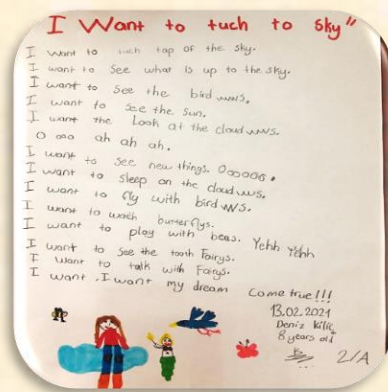 I Want to tuch to sky"
I want to tuch top of the sky.
I want to see what is up to the sky.
I want to see the bird
I want to see the sun.
I want the Look at the cloud
O ooo ah ah ah.
I want to see new things. Oooooo.
I want to sleep on the cloud
I want to fly with bird
I want to watch burterflys.
I want to play with beas. Yehh Yehh
I want to see the tooth Fairys.
I want to talk with Fairys.
I want . I want my dream come true!!!
13.02.2021
Deniz Kılıç
8 years old
2/A